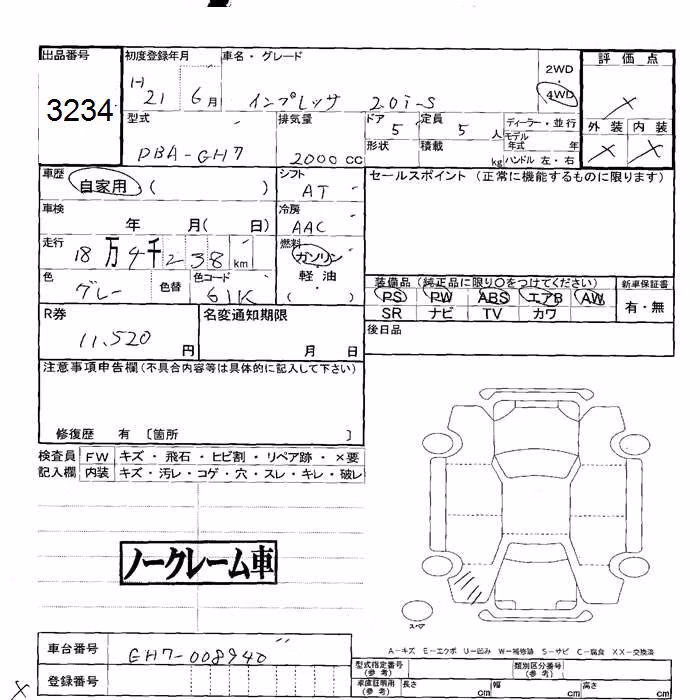 出品番号
3234
初度登録年月
H 21 6月
車名・グレード
インプレッサ 2.0i-S
2WD
・
4WD
評価点
×
外装 内装
× ×
型式
DBA-GH7
排気量
2000 CC
ドア 5
定員 5 人
ディーラー・並行
モデル年式 年
形状
積載 kg
ハンドル 左・右
車歴
自家用 ( )
シフト
AT
セールスポイント (正常に機能するものに限ります)
車検
年 月( 日)
冷房
AAC
走行
18万4千238km
燃料
ガソリン
軽・油
( )
色
グレー
色替
色コード
61K
装備品 (純正品に限り○をつけてください)
新車保証書
PS PW ABS エアB AW
有・無
SR ナビ TV カワ
R券
11,520 円
名変通知期限
月 日
後日品
注意事項申告欄(不具合内容等は具体的に記入して下さい)
修復歴 有 〔箇所 〕
検査員 FW キズ・飛石・ヒビ割・リペア跡・×要
記入欄 内装 キズ・汚レ・コゲ・穴・スレ・キレ・破レ
ノークレーム車
スペア
A-キズ E-エクボ U-凹み W-補修跡 S-サビ C-腐食 XX-交換済
車台番号
GH7-008940
登録番号
×
型式指定番号
(参考)
類別区分番号
(参考)
車庫証明用
(参考)
長さ cm
幅 cm
高さ cm